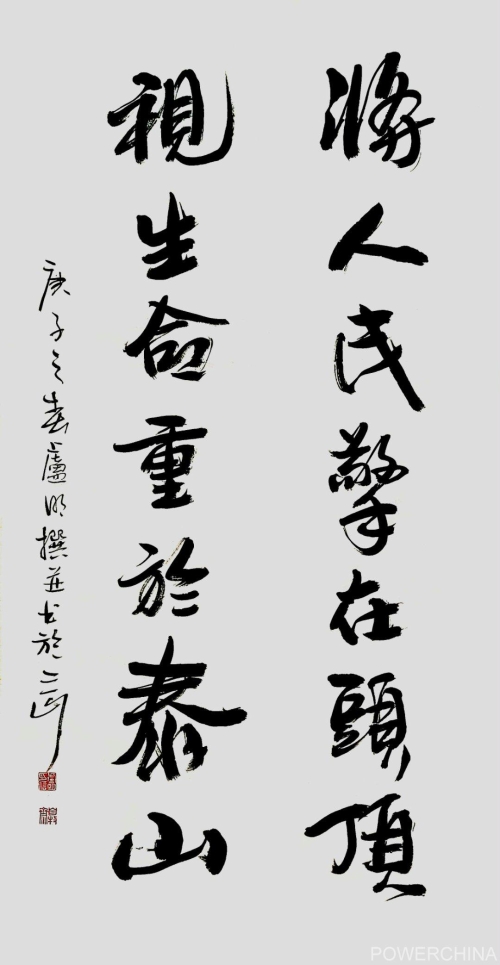 將人民擎在頭頂
視生命重於泰山
庚子之春盧明撰並书於
POWERCHINA